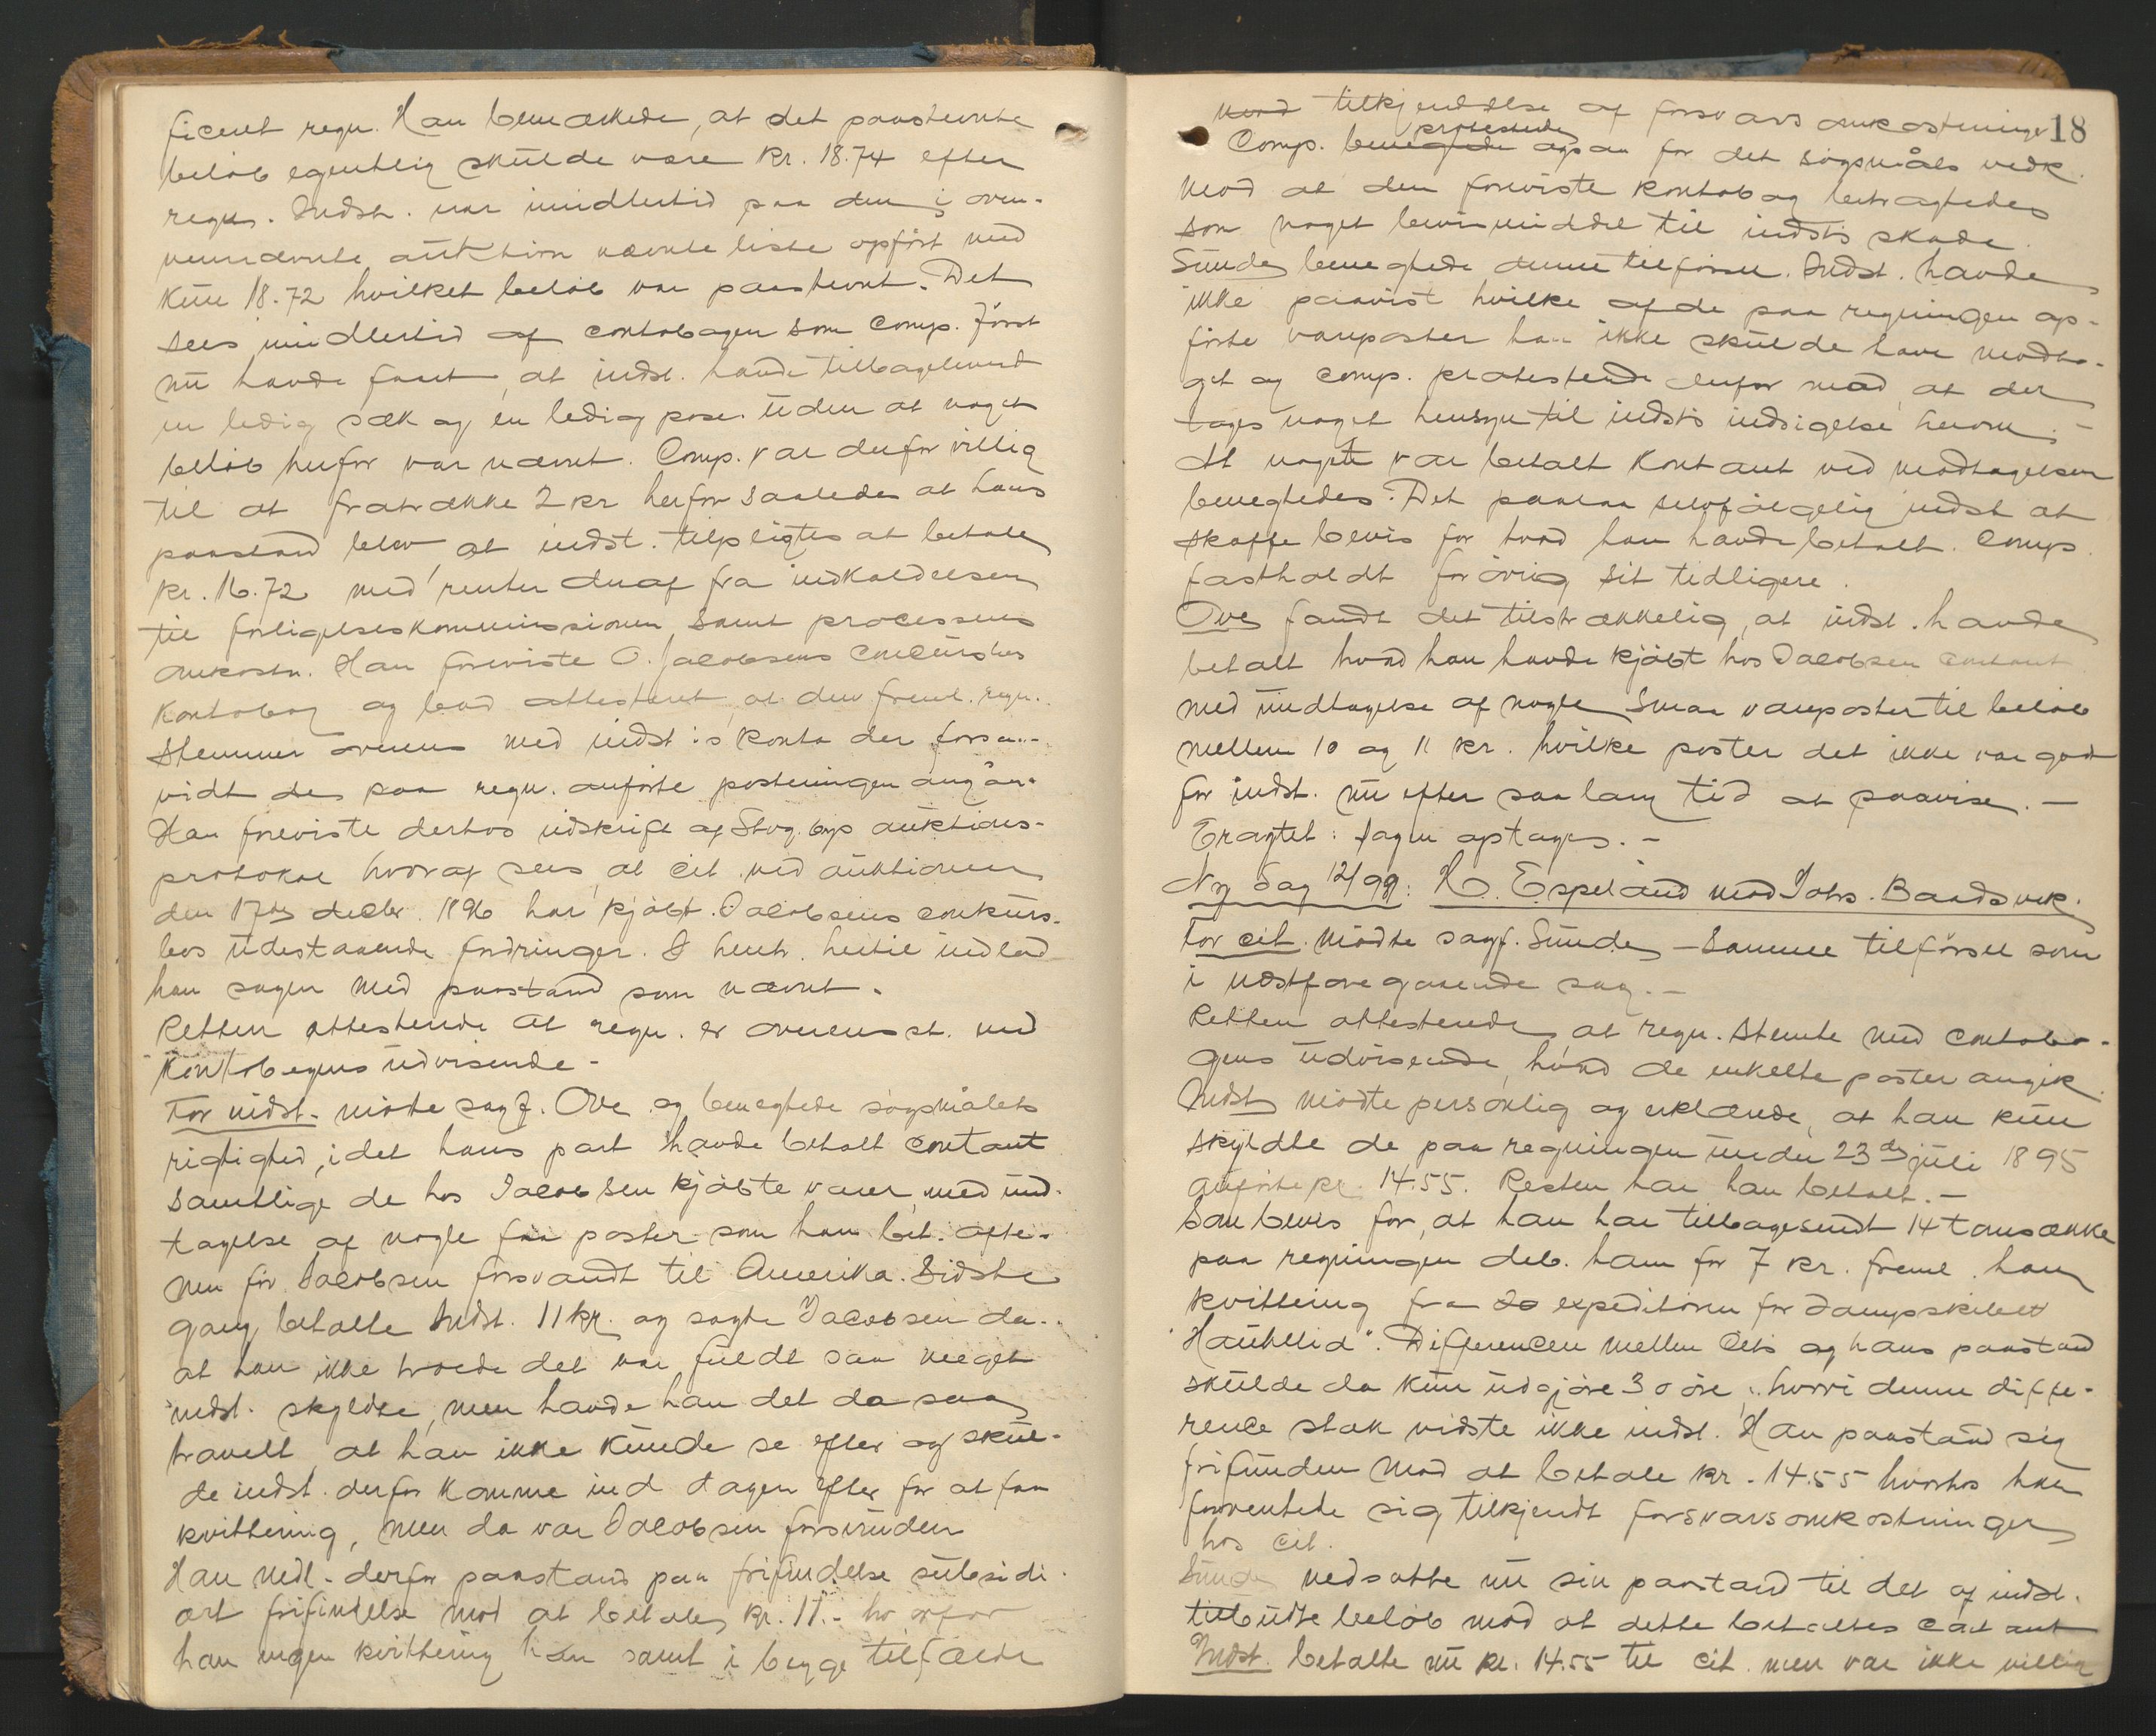 ficeret regn. Han bemærkede, at det paastevnte
beløb egentlig skulde være kr. 18.74 efter
regn. Indst. var imidlertid paa den i oven-
nævnte auktion nævnte liste opført med
kun 18.72 hvilket beløb var paastevnt. Det
sees imidlertid af contobogen som Comp. først
nu havde faaet, at indst. havde tilbageleveret
en ledig sæk og en ledig pose uden at noget
beløb herfor var nævnt. Comp. var derfor villig
til at fratrække 2 kr herfor saaledes at hans
paastand blev, at indst. tilpligtes at betale
kr. 16.72 med renter deraf fra indkaldelsen
til forligelseskommissionen samt processens
omkostn. Han foreviste O. Jacobsens Concursbos
Kontobog og bad attesteret, at den freml. regn.
stemmer overens med indst:s konto der forsaa-
vidt de paa regn. anførte posteringer angaar.
Han foreviste derhos udskrift af Stvg. bys auktions-
protokol hvoraf sees, at cit. ved auktionen
den 17de decbr. 1896 har kjøbt Jacobsens konkurs-
bos udestaaende fordringer. I henh. hertil indlod
han sagen med paastand som nævnt.
Retten attesterede at regn. er overensst. med
Kontobogens udvisende -
For indst. mødte sagf. Ove og benegtede søgsmålets
rigtighed, idet hans part havde betalt contant
samtlige de hos Jacobsen kjøbte varer, med und-
tagelse af nogle faa poster som han bet. afte-
nen før Jacobsen forsvandt til Amerika. Sidste
gang betalte Indst. 11 kr. og sagde Jacobsen da
at han ikke troede det var fuldt saa meget
indst. skyldte, men havde han det da saa
travelt at han ikke kunde se efter og skul-
de indst. derfor komme ind dagen efter for at faa
kvittering, men da var Jacobsen forsvunden
Han nedl. derfor paastand paa frifindelse subsidi-
ært frifindelse mod at betale kr. 11.- hvorfor
han ingen kvittering har samt i begge tilfælde
18
mod tilkjendelse af forsvarsomkostninger
protesterede
Comp. benegtede ogsaa for det søgsmåls vedk.
mod at den foreviste kontobog betragtedes
som noget bevismiddel til indsts skade.
Sunde benegtede denne tilførsel. Indst. havde
ikke paavist hvilke af de paa regningen op-
førte vareposter han ikke skulde have modta-
get og comp. protesterede derfor mod, at der
tages noget hensyn til indsts indsigelse herom. -
At noget var betalt kontant ved modtagelsen
benegtedes. Det paalaa selvfølgelig indst at
skaffe bevis for hvad han havde betalt. Comp.
fastholdt forøvrig sit tidligere.
Ove fandt det tilstrækkelig, at indst. havde
betalt hvad han havde kjøbt hos Jacobsen contant
med undtagelse af nogle smaa vareposter til beløb
mellem 10 og 11 kr. hvilke poster det ikke var godt
for indst. nu efter saa lang tid at paavise. -
Eragtet: sagen optages. -
Ny Sag 12/99: H. Espeland mod Johs. Baadsvik.
For cit. mødte sagf. Sunde - Samme tilførsel som
i næstforegaaende sag. -
Retten attesterede at regn. stemte med contobo-
gens udvisende, hvad de enkelte poster angik.
Indst mødte personlig og erklærede, at han kun
skyldte de paa regningen under 23de juli 1895
anførte kr. 14.55. Resten har han betalt. -
Som bevis for, at han har tilbagesendt 14 tomsække
paa regningen deb. ham for 7 kr. freml. han
kvittering fra expeditøren for dampskibet
"Haukelid". Differencen mellem Cits og hans paastand
skulde da kun udgjøre 30 øre; hvori denne diffe-
rence stak vidste ikke indst. Han paastod sig
frifunden mod at betale kr. 14.55 hvorhos han
forventede sig tilkjendt forsvarsomkostninger
hos cit.
Sunde nedsatte nu sin paastand til det af indst.
tilbudte beløb mod at dette betaltes contant
Indst. betalte nu kr. 14.55 til cit. men var ikke villig